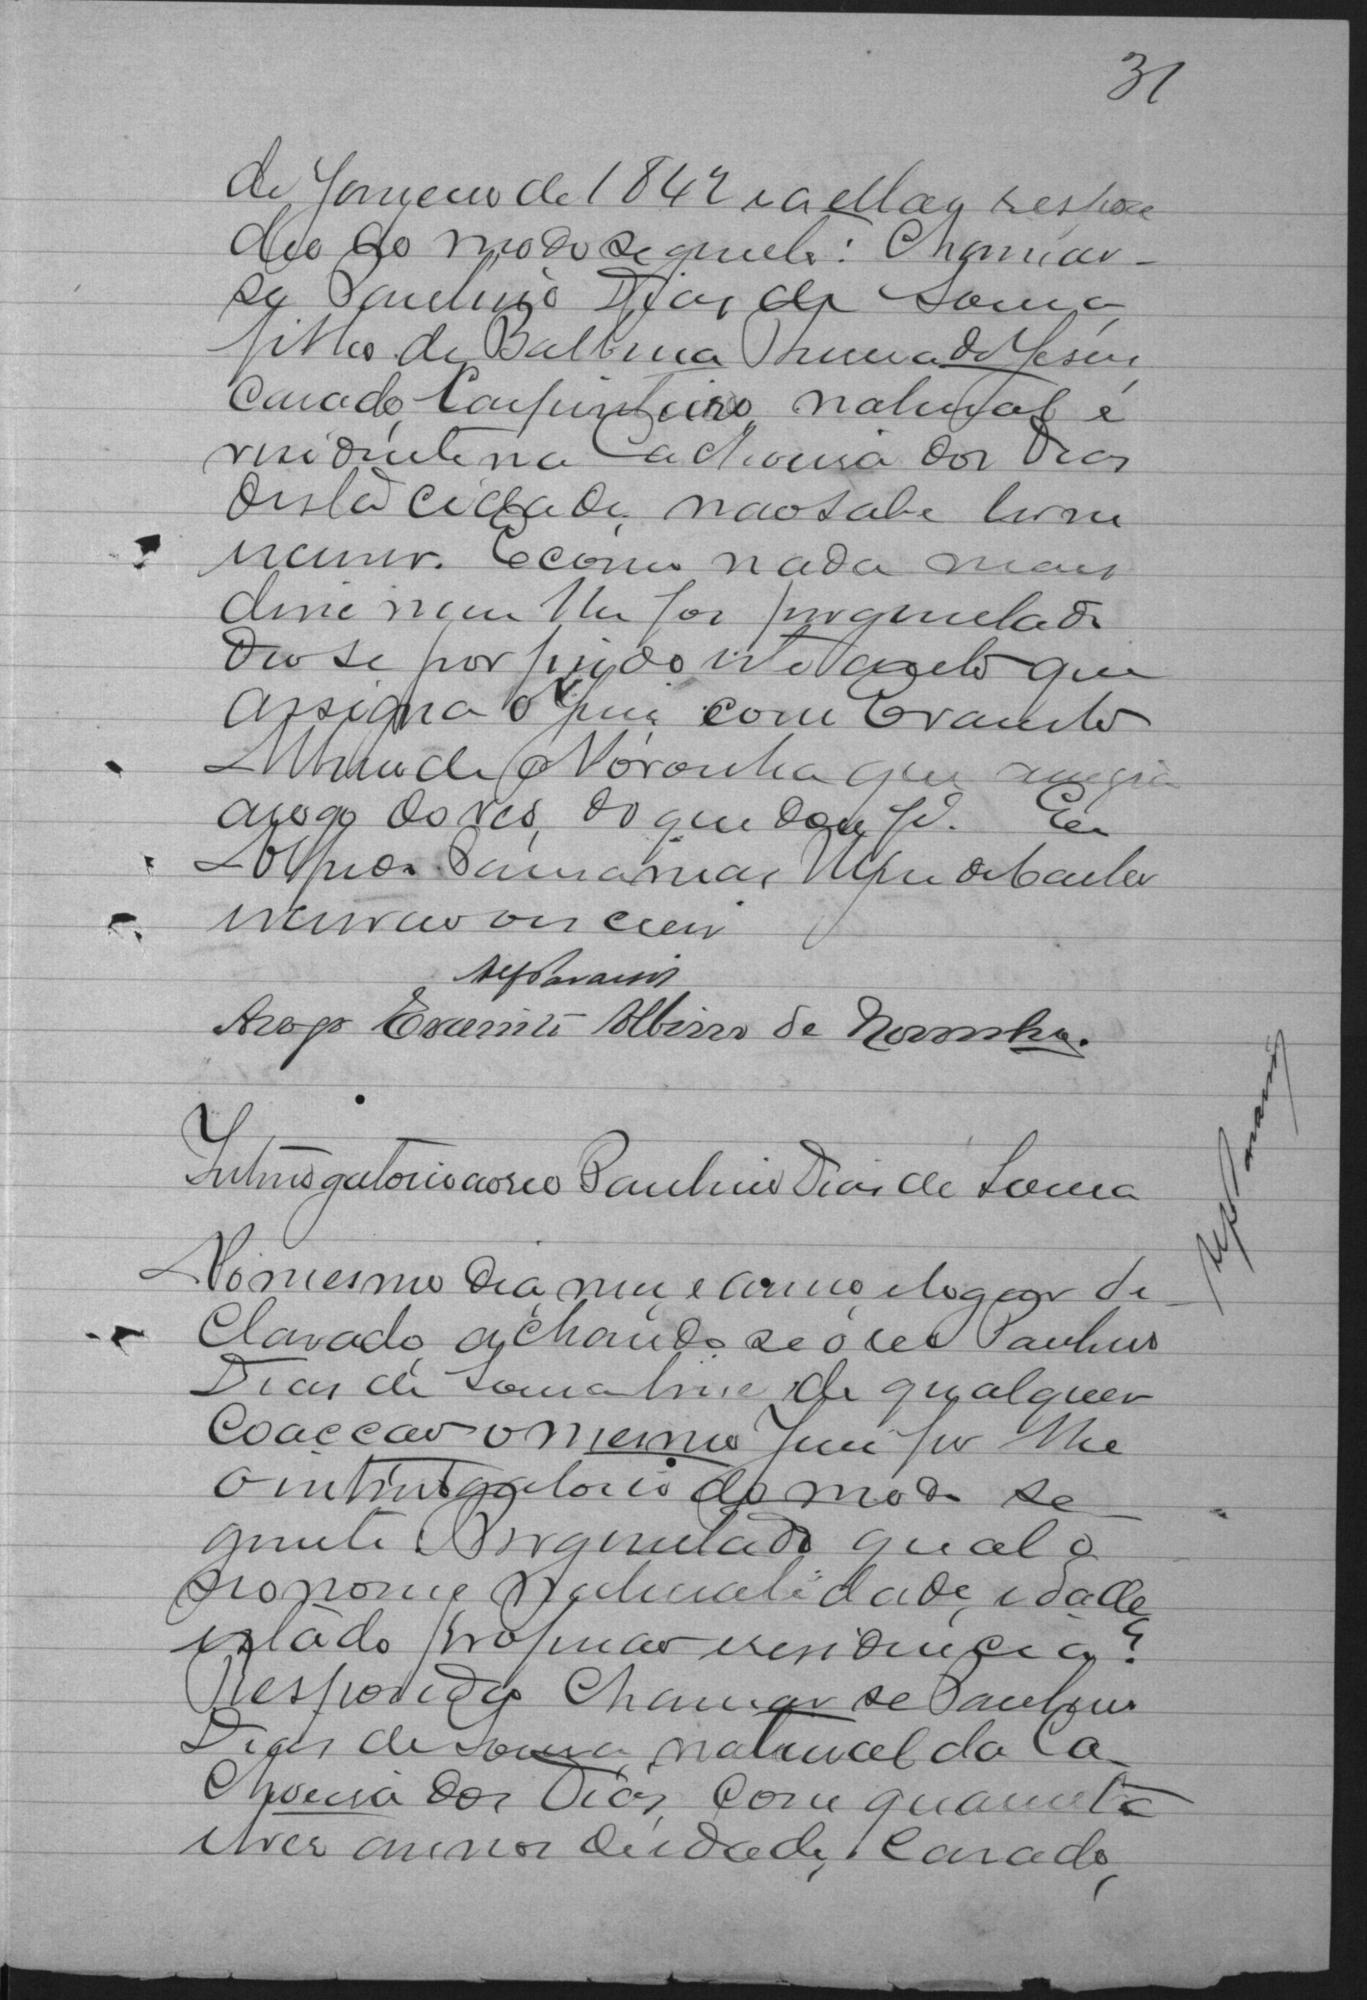 31
de Janeiro de 1842 e a ellas respon
deo do modo seguinte: Chamar-
se Paulino Dias de Sousa,
filho de Balbina Maria de Jesus,
casado, Carpinteiro, natural e
residente na Cachoeira dos Dias
desta cidade, não sabe ler ne
escrever. E como nada mais
disse nem lhe foi perguntado
deo se por findo este auto que
assigna o Juiz com Evaristo
Albino de Noronha que assigna
arogo do reo, do que dou fé. Eu
escrivão o escrevi
Arogo Evaristo Albino de Noronha.
Interrogatorio ao reo Paulino Dias de Sousa
No mesmo dia, mez e anno, e logar de
Clarado, achando se o reo Paulino
Dias de Sousa livre de qualquer
coacção o mesmo Juiz fez lhe
o interrogatorio do modo se
guinte. Perguntado qual o
seo nome, naturalidade, idade,
estado, profissão e residencia?
Respondeo Chamar se Paulino
Dias de Sousa, natural da Ca
choeira dos Dias, com quarenta
e tres annos de idade, Casado,